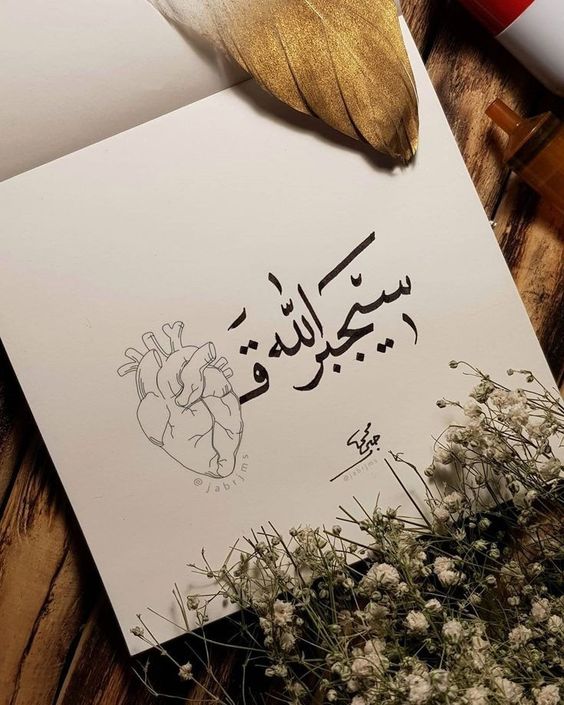 سيجبر الله قـ
@jabrjms
@jabrjms